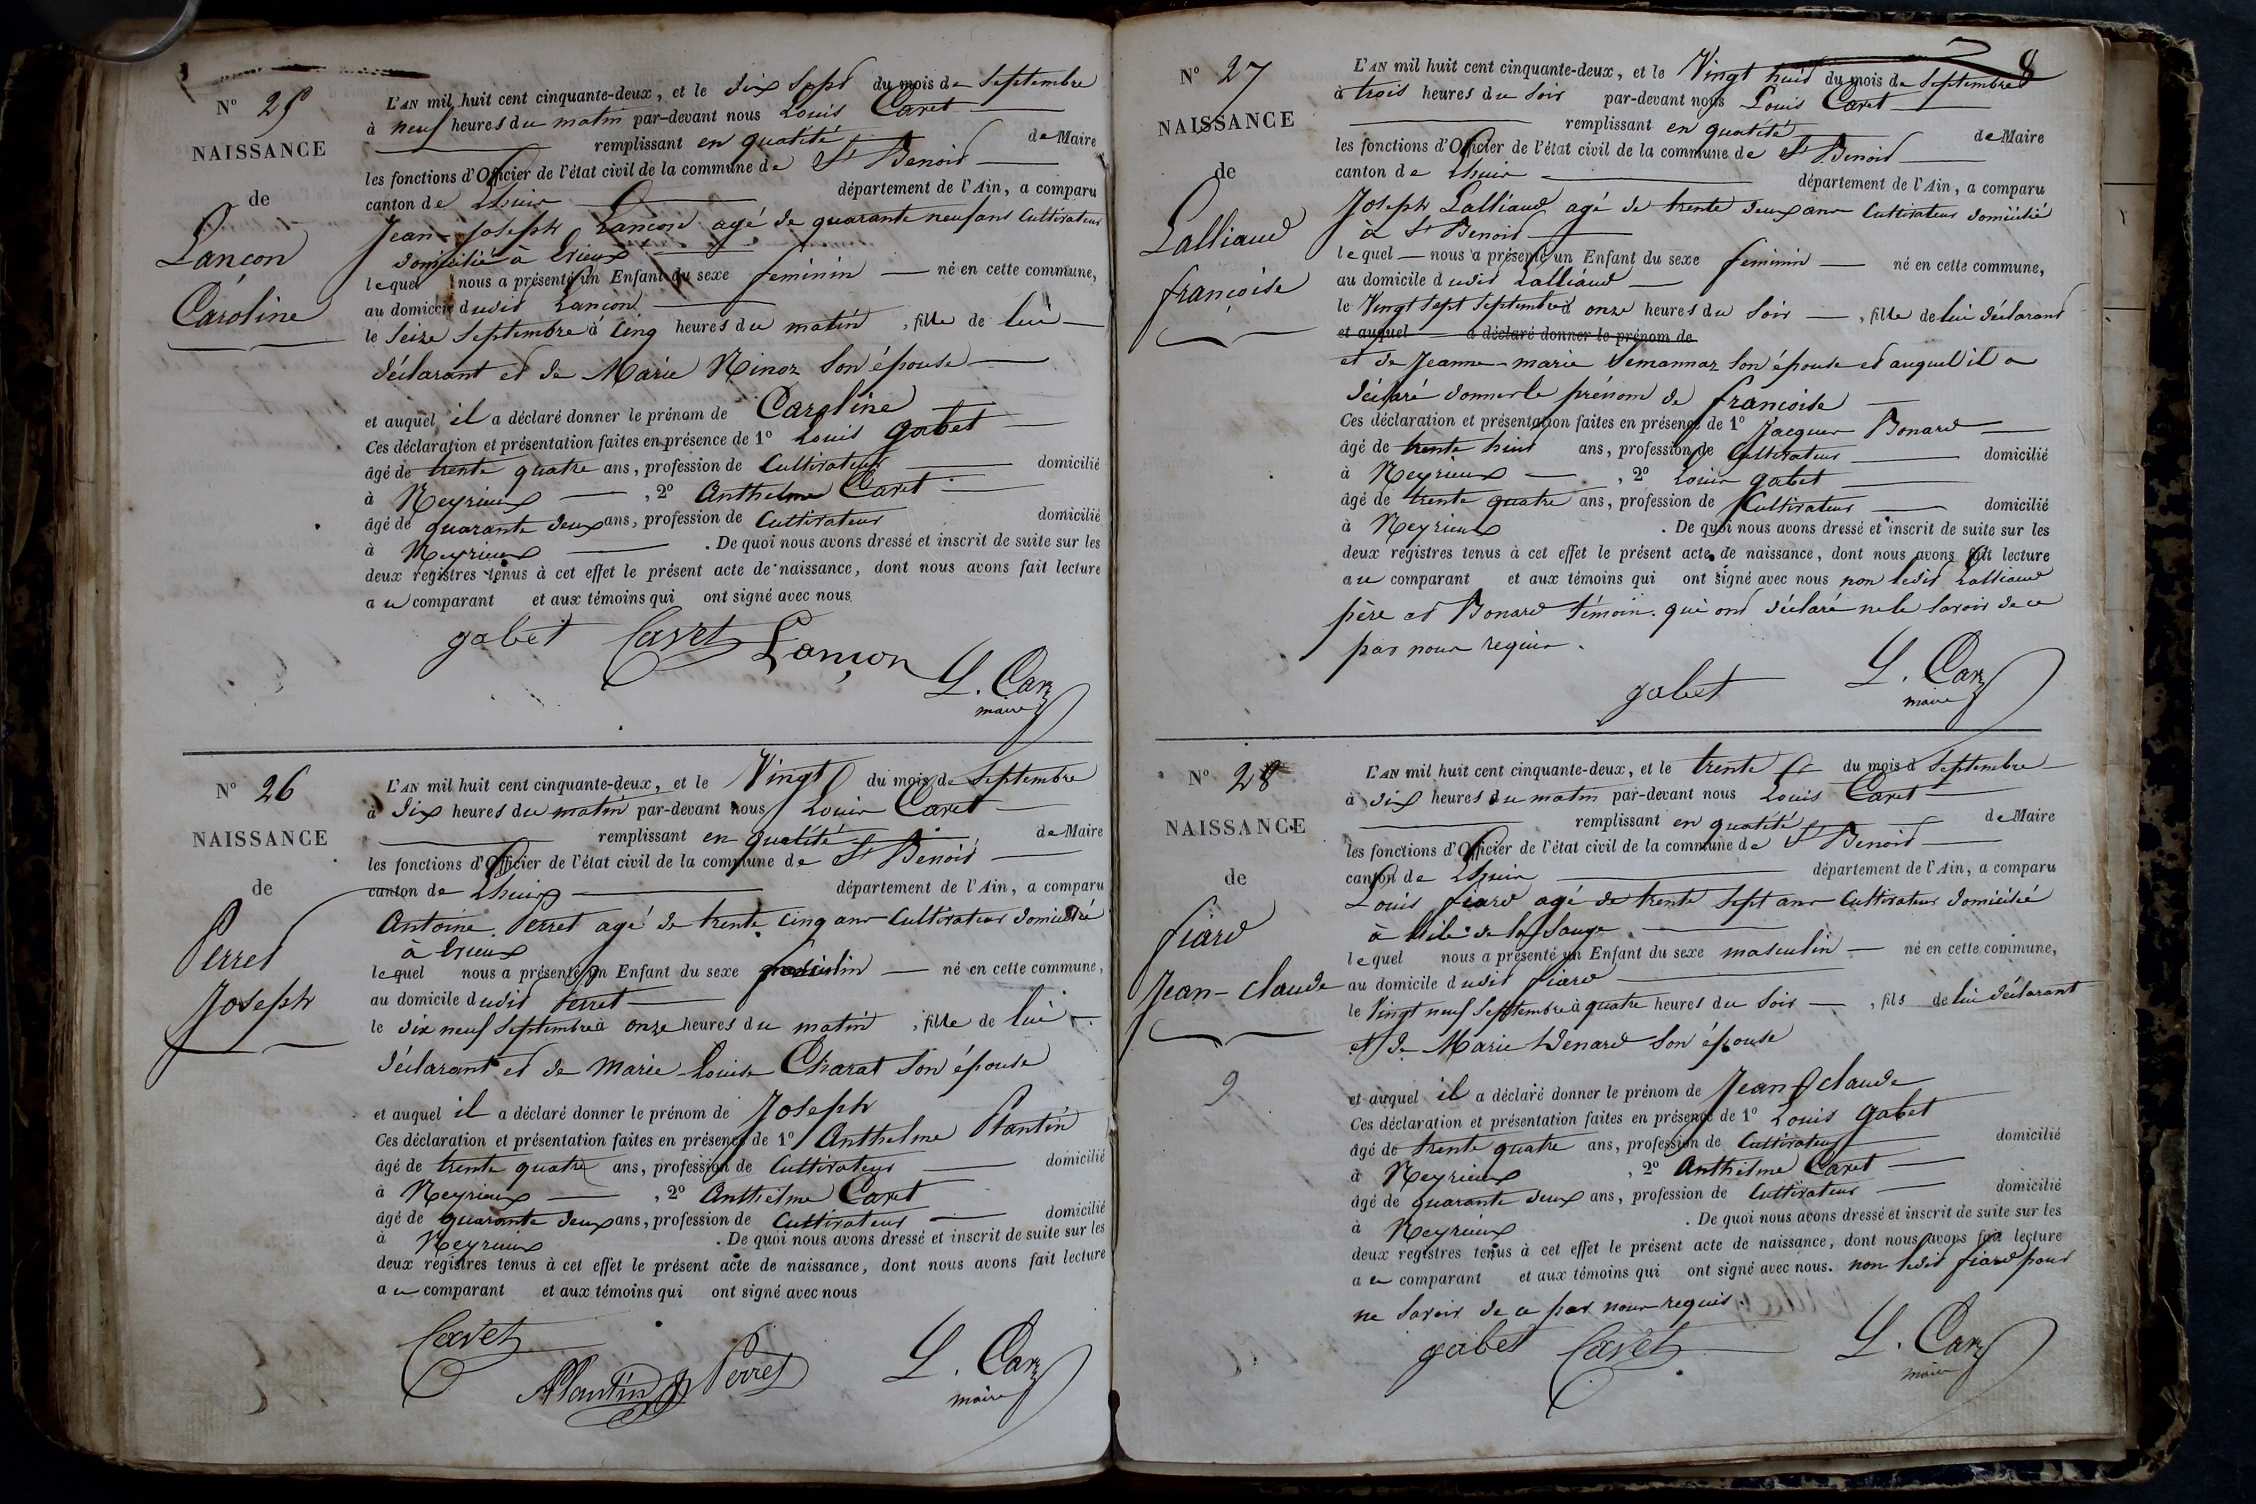 N° 25
NAISSANCE
de
Lançon
Caroline
L'AN mil huit cent cinquante-deux, et le dix sept du mois de Septembre
à neuf heures du matin par-devant nous Louis Caret
remplissant en qualité de Maire
les fonctions d'Officier de l'état civil de la commune de St Benoit
canton de Lhuis département de l'Ain, a comparu
Jean-Joseph Lançon agé de quarante neuf ans Cultivateur
domicilié à
lequel nous a présenté un Enfant du sexe feminin né en cette commune,
au domicile dudit Lançon
le Seize Septembre à Cinq heures du matin, fille de lui
déclarant et de Marie Ninoz Son épouse
et auquel il a déclaré donner le prénom de Caroline
Ces déclaration et présentation faites en présence de 1° Louis gabet
âgé de trente quatre ans, profession de Cultivateur domicilié
à Neyrieux, 2° Anthelme Caret
âgé de quarante deux ans, profession de Cultivateur domicilié
à Neyrieux. De quoi nous avons dressé et inscrit de suite sur les
deux registres tenus à cet effet le présent acte de naissance, dont nous avons fait lecture
au comparant et aux témoins qui ont signé avec nous
gabet Caret Lançon L. Car
maire
N° 26
NAISSANCE
de
Perret
Joseph
L'AN mil huit cent cinquante-deux, et le Vingt du mois de Septembre
à dix heures du matin par-devant nous Louis Caret
remplissant en qualité de Maire
les fonctions d'Officier de l'état civil de la commune de St Benoit
canton de Lhuis département de l'Ain, a comparu
Antoine Perret agé de trente cinq ans Cultivateur domicilié
à
lequel nous a présenté un Enfant du sexe masculin né en cette commune,
au domicile dudit Perret
le dix neuf Septembre à onze heures du matin, fille de lui
déclarant et de Marie-Louise Charat Son épouse
et auquel il a déclaré donner le prénom de Joseph
Ces déclaration et présentation faites en présence de 1° Anthelme Plantin
âgé de trente quatre ans, profession de Cultivateur domicilié
à Neyrieux, 2° Anthelme Caret
âgé de quarante deux ans, profession de Cultivateur domicilié
à Neyrieux. De quoi nous avons dressé et inscrit de suite sur les
deux registres tenus à cet effet le présent acte de naissance, dont nous avons fait lecture
au comparant et aux témoins qui ont signé avec nous
Caret
Plantin Perret L. Car
maire
8
N° 27
NAISSANCE
de
Lalliaud
françoise
L'AN mil huit cent cinquante-deux, et le Vingt huit du mois de Septembre
à trois heures du Soir par-devant nous Louis Caret
remplissant en qualité de Maire
les fonctions d'Officier de l'état civil de la commune de St Benoit
canton de Lhuis département de l'Ain, a comparu
Joseph Lalliaud agé de trente deux ans Cultivateur domicilié
à St Benoit
lequel nous a présenté un Enfant du sexe feminin né en cette commune,
au domicile dudit Lalliaud
le Vingt sept Septembre à onze heures du Soir, fille de lui déclarant
et auquel a déclaré donner le prénom de
et de Jeanne-marie Son épouse et auquel il a
déclaré donner le prénom de françoise
Ces déclaration et présentation faites en présence de 1° Jacques Bonard
âgé de trente huit ans, profession de Cultivateur domicilié
à Neyrieux, 2° Louis gabet
âgé de trente quatre ans, profession de Cultivateur domicilié
à Neyrieux. De quoi nous avons dressé et inscrit de suite sur les
deux registres tenus à cet effet le présent acte de naissance, dont nous avons fait lecture
au comparant et aux témoins qui ont signé avec nous non ledit Lalliaud
père et Bonard témoin qui ont déclaré ne le savoir de ce
par nous requis.
gabet L. Car
maire
N° 28
NAISSANCE
de
fiard
Jean-claude
9
L'AN mil huit cent cinquante-deux, et le trente du mois d Septembre
à dix heures du matin par-devant nous Louis Caret
remplissant en qualité de Maire
les fonctions d'Officier de l'état civil de la commune de St Benoit
canton de Lhuis département de l'Ain, a comparu
Louis fiard agé de trente Sept ans Cultivateur domicilié
à de la Sauge
lequel nous a présenté un Enfant du sexe masculin né en cette commune,
au domicile dudit fiard
le Vingt neuf Septembre à quatre heures du Soir, fils de lui déclarant
et de Marie Son épouse
et auquel il a déclaré donner le prénom de Jean claude
Ces déclaration et présentation faites en présence de 1° Louis gabet
âgé de trente quatre ans, profession de Cultivateur domicilié
à Neyrieux, 2° Anthelme Caret
âgé de quarante deux ans, profession de Cultivateur domicilié
à Neyrieux. De quoi nous avons dressé et inscrit de suite sur les
deux registres tenus à cet effet le présent acte de naissance, dont nous avons fait lecture
au comparant et aux témoins qui ont signé avec nous. non ledit fiard pour
ne savoir de ce par nous requis
gabet Caret L. Car
maire